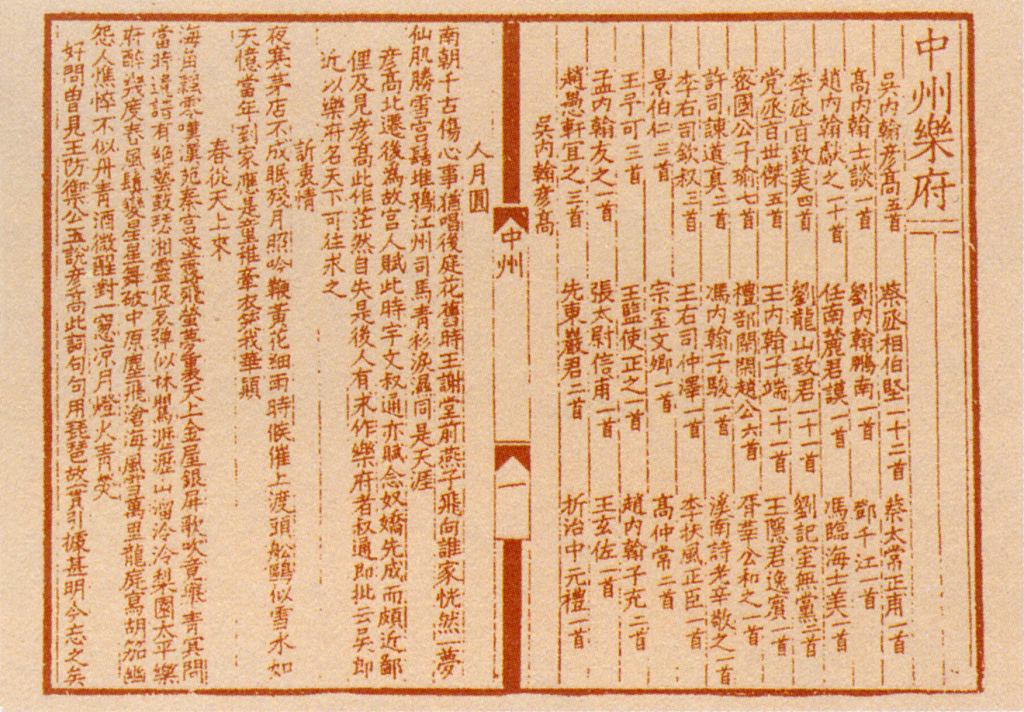 中州樂府
吳內翰彥高五首 蔡丞相伯堅一十二首 蔡太常正甫一首
高內翰士談一首 劉內翰鵬南一首 鄧千江一首
趙內翰獻之一十首 任南麓君謨一首 馮臨海士美一首
李丞百致美四首 劉龍山致君一十一首 劉記室無黨二首
党丞百世傑五首 王內翰子端一十一首 王隱君逸賓一首
密國公子瑜七首 禮部閑閑趙公六首 胥莘公和之一首
許司諫道真二首 馮內翰子駿一首 溪南詩老辛敬之一首
李右司欽叔三首 王右司仲澤一首 李扶風正臣一首
景伯仁三首 宗室文卿一首 高仲常二首
王予可三首 王監使正之一首 趙內翰子充二首
孟內翰友之一首 張太尉信甫一首 王玄佐一首
趙愚軒宜之三首 先東巖君二首 折治中元禮一首
吳內翰彥高
中州
一
人月圓
南朝千古傷心事猶唱後庭花舊時王謝堂前燕子飛向誰家恍然一夢
仙肌勝雪宮鬟堆鴉江州司馬青衫淚濕同是天涯
彥高北遷後為故宮人賦此時宇文叔通亦賦念奴嬌先成而頗近鄙
俚及見彥高此作茫然自失是後人有求作樂府者叔通即批云吳郎
近以樂府名天下可往求之
訴衷情
夜寒茅店不成眠殘月照吟鞭黃花細雨時候催上渡頭船鷗似雪水如
天憶當年到家應是童稚牽衣笑我華顛
春從天上來
海角飄零嘆漢苑秦宮墜露飛螢夢裏天上金屋銀屏歌吹競舉青冥問
當時遺譜有絕藝鼓瑟湘靈促哀彈似林鶯嚦嚦山溜泠泠梨園太平樂
府醉幾度春風鬢變星星舞破中原塵飛滄海風雪萬里龍庭寫胡笳幽
怨人憔悴不似丹青酒微醒對一窓涼月燈火青熒
好問曾見王防禦公玉說彥高此詞句句用琵琶故實引據甚明今忘之矣